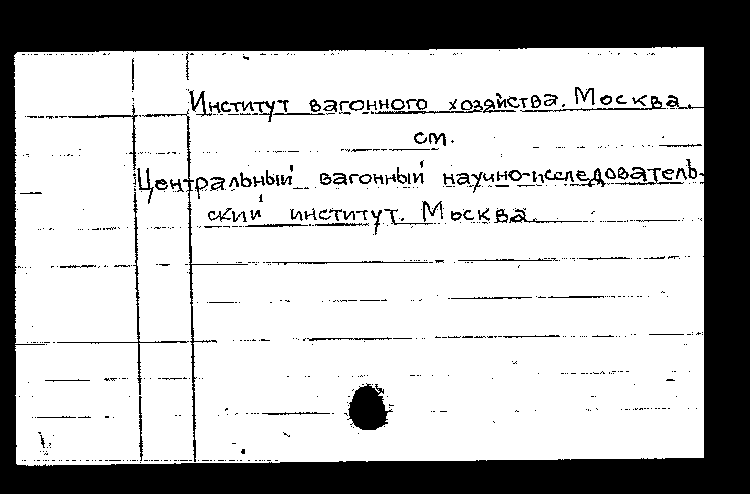 Институт вагонного хозяйства. Москва.
см.
Центральный вагонный научно-исследователь-
ский институт. Москва.